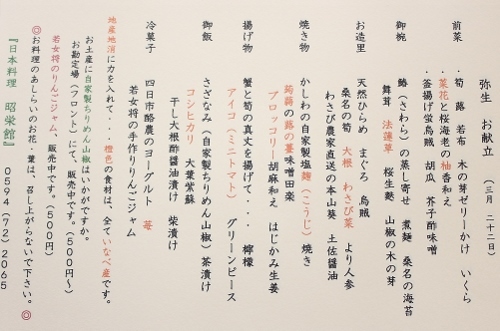 弥生 お献立 (三月 二十二日)
前菜
・筍 蕗 若布 木の芽ゼリーかけ いくら
・菜花と桜海老の柚香和え
・釜揚げ蛍烏賊 胡瓜 芥子酢味噌
御椀
鰆(さわら)の蒸し寄せ 煮麺 桑名の海苔
舞茸 法蓮草 桜生麩 山椒の木の芽
お造里
天然ひらめ まぐろ 烏賊
桑名の筍 大根 わさび菜 より人参
わさび農家直送の本山葵 土佐醤油
焼き物
かしわの自家製塩麹(こうじ)焼き
蒟蒻の蕗の薹味噌田楽
ブロッコリー胡麻和え はじかみ生姜
揚げ物
蟹と筍の真丈を揚げて・・・ 檸檬
アイコ(ミニトマト) グリーンピース
御飯
さざなみ(自家製ちりめん山椒)茶漬け
コシヒカリ 大葉紫蘇
干し大根酢醤油漬け 柴漬け
冷菓子
四日市酪農のヨーグルト 苺
若女将の手作りりんごジャム
地産地消に力を入れて・・・橙色の食材は、全ていなべ産です。
お土産に自家製ちりめん山椒はいかがですか。
お勘定場(フロント)にて、販売中です。(500円)
若女将のりんごジャム、販売中です。(500円)
◎お料理のあしらいのお花・葉は、召し上がらないで下さい。◎
『日本料理 昭栄館』 0594(72)2065